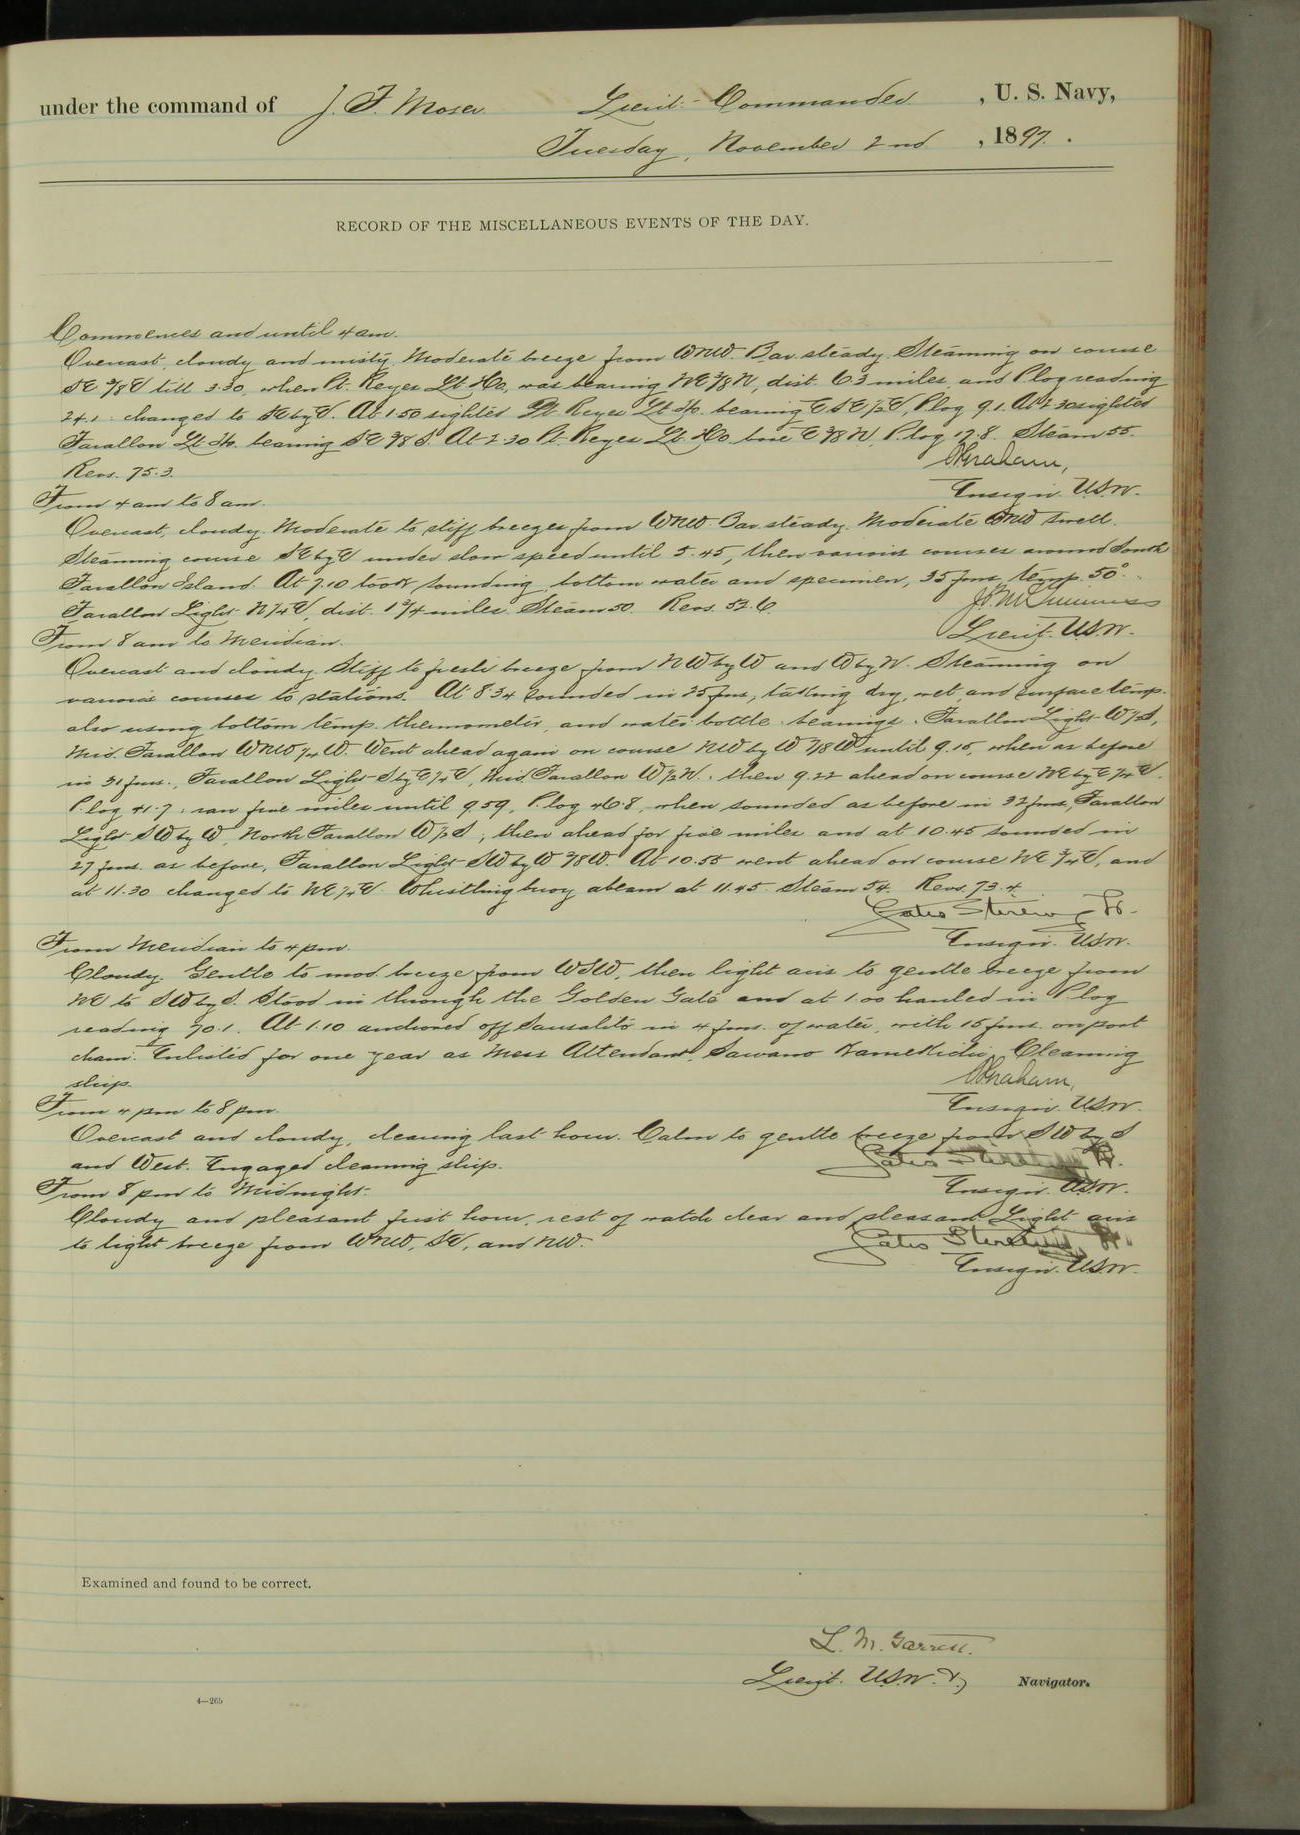 under the command of J. F. Moser Lieut-Commander, U. S. Navy,
Tuesday, November 2nd, 1897.
RECORD OF THE MISCELLANEOUS EVENTS OF THE DAY.
Commences and until 4 am.
Overcast, cloudy and misty. Moderate breeze from WNW. Bar. steady. Steaming on course
SE 3/8 E till 3.30, when Pt. Reyes Lt. Ho. was bearing NE 3/8 N, dist. 6.3 miles, and P. log reading
24.1: changed to SE by E. At 1.50 sighted Pt. Reyes Lt. Ho. bearing ESE 1/2 E, P log 9.1. At 2.30 sighted
Farallon Lt. Ho. bearing SE 3/8 S. At 2.30 Pt. Reyes Lt. Ho. bore E 3/8 N, P. log 17.8. Steam 55.
Revs. 75.3.
Graham,
Ensign. U.S.N.
From 4 am to 8 am.
Overcast, cloudy. Moderate to stiff breezes from WNW. Bar. steady. Moderate WNW swell.
Steaming course SE by E under slow speed until 5.45, then various courses around South
Farallon Island. At 7.10 took sounding, bottom water and specimen, 35 fms, temp. 50°.
Farallon Light N 1/4 E, dist. 1 3/4 miles. Steam 50. Revs. 52.6.
Lieut. U.S.N.
From 8 am to Meridian.
Overcast and cloudy. Stiff to fresh breeze from NW by W and W by N. Steaming on
various courses to stations. At 8.34 sounded in 35 fms, taking dry, wet, and surface temp.
also using bottom temp. thermometer, and water bottle. bearings. Farallon Light W 1/2 S,
Mid. Farallon WNW 1/4 W. Went ahead again on course NW by W 7/8 W until 9.15, when as before
in 31 fms., Farallon Light S by E 1/4 E, Mid. Farallon W 1/2 N. then 9.22 ahead on course NE by E 1/4 E.
P. log 41.7: ran five miles until 9.59, P. log 46.8, when sounded as before in 32 fms, Farallon
Light SW by W, North Farallon W 1/2 S; then ahead for five miles and at 10.45 sounded in
27 fms. as before, Farallon Light SW by W 3/8 W. At 10.55 went ahead on course NE 3/4 E, and
at 11.30 changed to NE 1/4 E. Whistling buoy abeam at 11.45. Steam 54. Revs. 73.4.
Yates Stirling Jr.
Ensign. U.S.N.
From Meridian to 4 pm.
Cloudy. Gentle to mod. breeze from WSW, then light airs to gentle breeze from
NE to SW by S. Stood in through the Golden Gate and at 1.00 hauled in P log
reading 70.1. At 1.10 anchored off Sausalito in 4 fms. of water, with 15 fms. on port
chain. Enlisted for one year as Mess Attendant Sawano. Cleaning
ship.
Graham,
Ensign. U.S.N.
From 4 pm to 8 pm.
Overcast and cloudy, clearing last hour. Calm to gentle breeze from SW by S
and West. Engaged cleaning ship.
Yates Stirling Jr.
Ensign. U.S.N.
From 8 pm to Midnight.
Cloudy and pleasant first hour, rest of watch clear and pleasant. Light airs
to light breeze from WNW, SE, and NW.
Yates Stirling Jr.
Ensign. U.S.N.
Examined and found to be correct.
L. M. Garrett.
Lieut. U.S.N. &, Navigator.
4—265